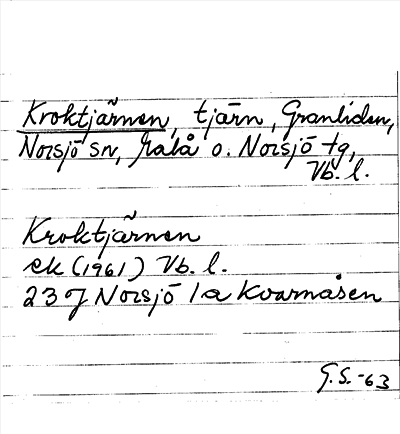 Kroktjärnen, tjärn, Granliden,
Norsjö sn, Malå o. Norsjö tg,
Vb. l.
Kroktjärnen
ek (1961) Vb. l.
23 J Norsjö 1a Kvarnåsen
G.S.-63